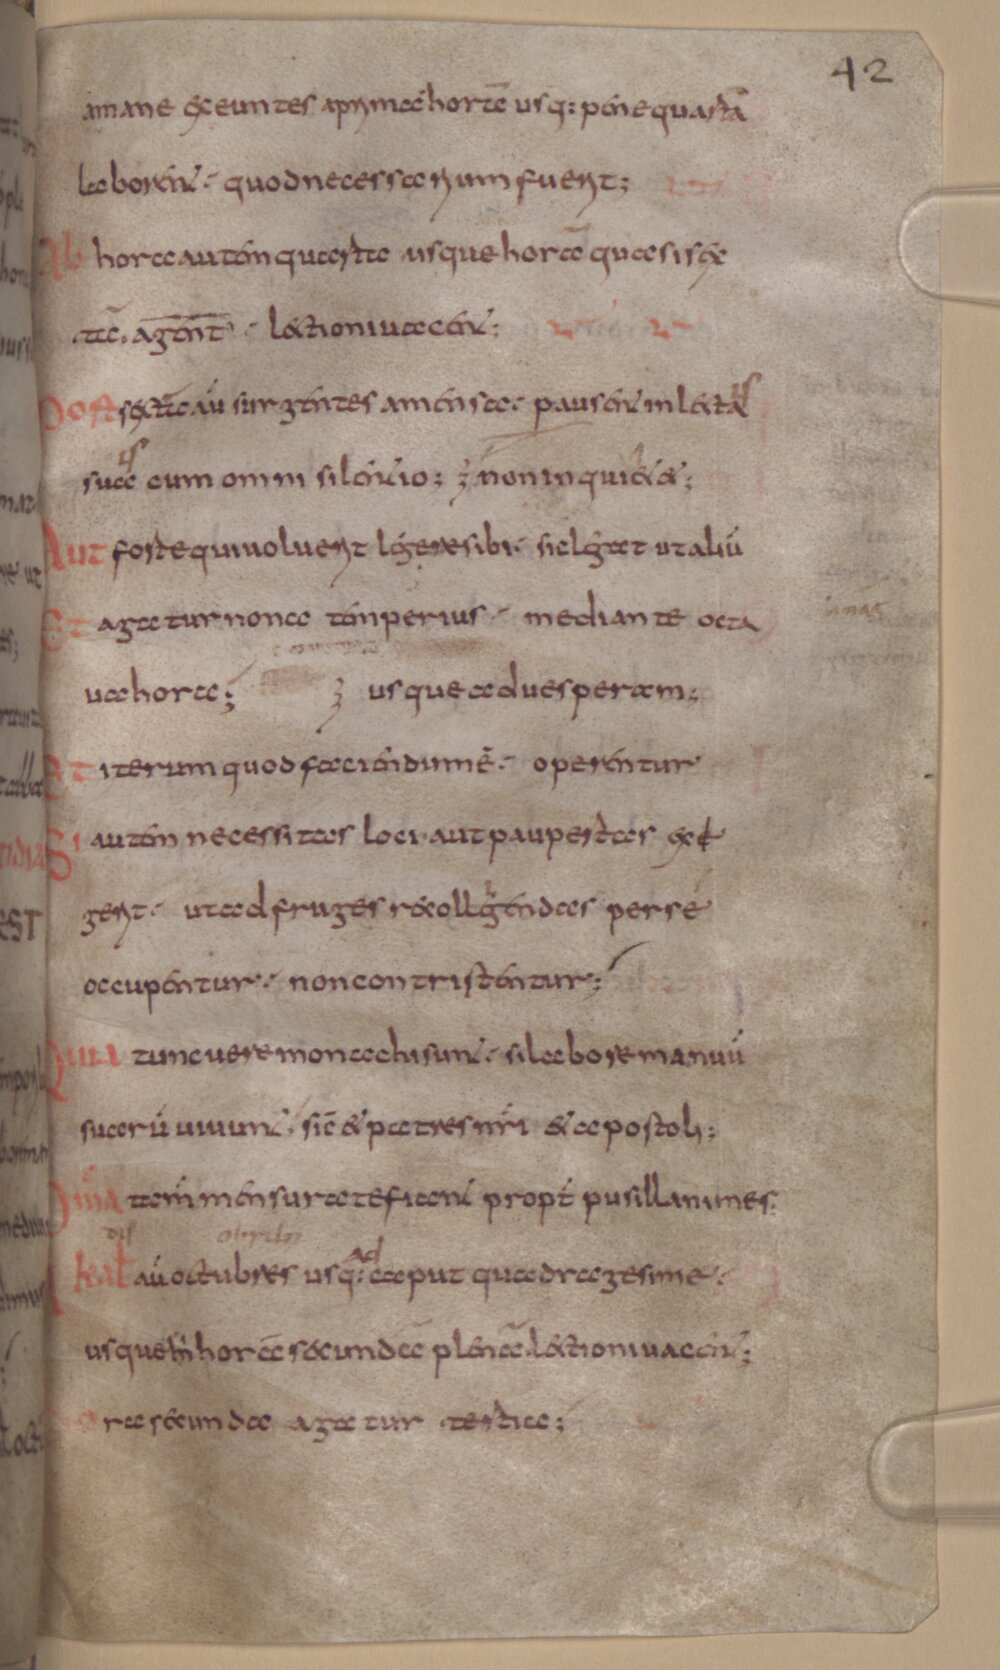 42
amane exeuntes aprima hora usq; pene quartā
laborent. quod necessarium fuerit;
Ab hora autem quarta usque horā quasi sex
tā. agent̄. lectioni vacent;
Post sextā aū surgentes a mensa. pausent in lecta
sua cum omni silentio; non inquietet;
Aut forte qui voluerit legere sibi. sic legat ut aliū
Et agatur nona temperius. mediante octa
va hora; usque ad vesperam;
Et iterum quod faciendum ē. operentur
Si autem necessitas loci aut paupertas exe
gerit. ut ad fruges recolligendas per sé
occupentur. non contristentur;
Quia tunc vere monachi sunt. si labore manuū
suarū vivunt. sic̄ et patres nr̄i et apostoli;
Omīa tam̄ mensurate fiant propt̄ pusillanimes;
kal̄ aū octubres usq; ad caput quadragesime.
usque in horā secundā plenā lectioni vacent;
ra secunda agatur tertia;